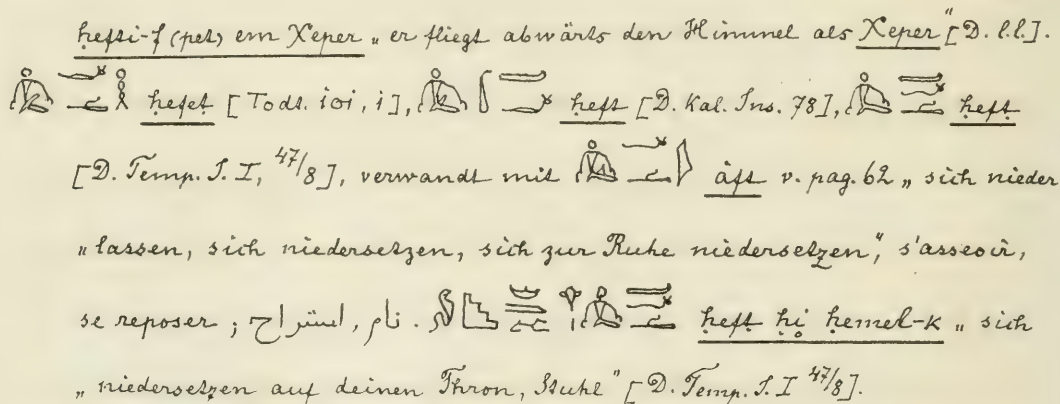 ḥefti-f (pet) em Xeper „er fliegt abwärts den Himmel als Xeper" [D. l.l.].
ḥefet [Todt. 101, 1], ḥeft [D. Kal. Ins. 78], ḥeft
[D. Temp. I. I, 47/8], verwandt mit àft v. pag. 62 „sich nieder
„lassen, sich niedersetzen, sich zur Ruhe niedersetzen", s'asseoir,
se reposer; نام, استراح. ḥeft ḥi ḥemet-k „sich
„niedersetzen auf deinen Thron, Stuhl" [D. Temp. I. I 47/8].